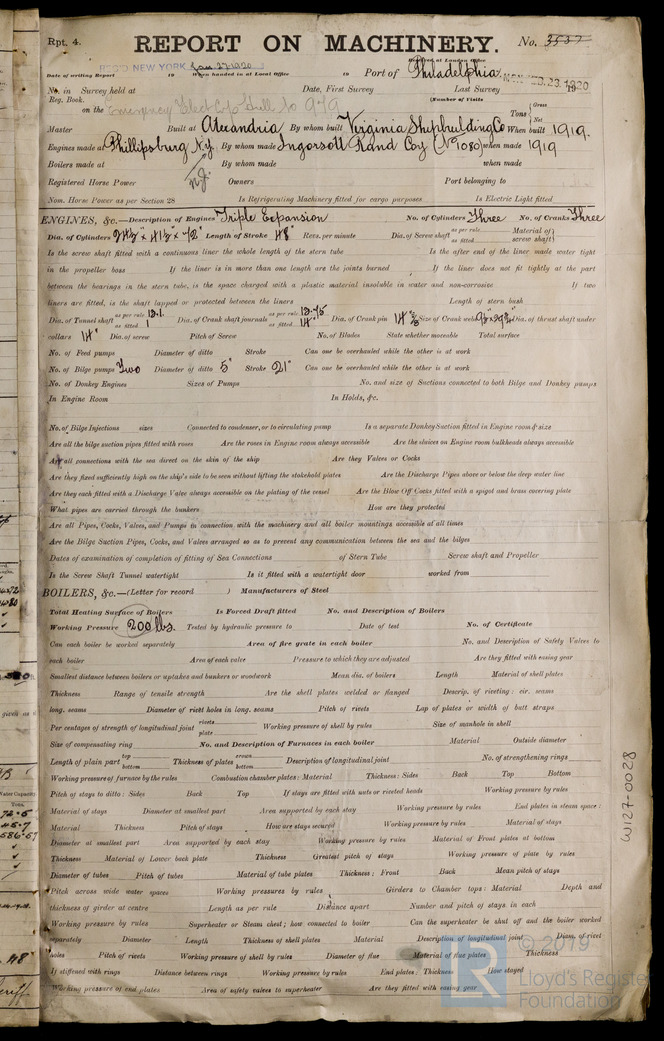 Rpt. 4.
REPORT ON MACHINERY.
No. 3537
REC'D NEW YORK Jan 27 1920
Received at London Office
Date of writing Report 19 When handed in at Local Office 19 Port of Philadelphia
WED. 23. 1920
No. in Survey held at Date, First Survey Last Survey 19
Reg. Book. (Number of Visits
on the Emergency Fleet Corp Hull No 979
Tons Gross Net
Master Built at Alexandria By whom built Virginia Shipbuilding Co When built 1919.
Engines made at Phillipsburg N.J. By whom made Ingersoll Rand Coy (No 1080) when made 1919
N.J.
Boilers made at By whom made when made
Registered Horse Power Owners Port belonging to
Nom. Horse Power as per Section 28 Is Refrigerating Machinery fitted for cargo purposes Is Electric Light fitted
ENGINES, &c.—Description of Engines Triple Expansion No. of Cylinders Three No. of Cranks Three
Dia. of Cylinders 24½" x 41½" x 72" Length of Stroke 48" Revs. per minute Dia. of Screw shaft as per rule as fitted Material of screw shaft
Is the screw shaft fitted with a continuous liner the whole length of the stern tube Is the after end of the liner made water tight
in the propeller boss If the liner is in more than one length are the joints burned If the liner does not fit tightly at the part
between the bearings in the stern tube, is the space charged with a plastic material insoluble in water and non-corrosive If two
liners are fitted, is the shaft lapped or protected between the liners Length of stern bush
Dia. of Tunnel shaft as per rule 13.1. as fitted Dia. of Crank shaft journals as per rule 13.75 as fitted 14" Dia. of Crank pin 14 Size of Crank webs Dia. of thrust shaft under
collars 14" Dia. of screw Pitch of Screw No. of Blades State whether moveable Total surface
No. of Feed pumps Diameter of ditto Stroke Can one be overhauled while the other is at work
No. of Bilge pumps Two Diameter of ditto 5" Stroke 21" Can one be overhauled while the other is at work
No. of Donkey Engines Sizes of Pumps No. and size of Suctions connected to both Bilge and Donkey pumps
In Engine Room In Holds, &c.
No. of Bilge Injections sizes Connected to condenser, or to circulating pump Is a separate Donkey Suction fitted in Engine room & size
Are all the bilge suction pipes fitted with roses Are the roses in Engine room always accessible Are the sluices on Engine room bulkheads always accessible
Are all connections with the sea direct on the skin of the ship Are they Valves or Cocks
Are they fixed sufficiently high on the ship's side to be seen without lifting the stokehold plates Are the Discharge Pipes above or below the deep water line
Are they each fitted with a Discharge Valve always accessible on the plating of the vessel Are the Blow Off Cocks fitted with a spigot and brass covering plate
What pipes are carried through the bunkers How are they protected
Are all Pipes, Cocks, Valves, and Pumps in connection with the machinery and all boiler mountings accessible at all times
Are the Bilge Suction Pipes, Cocks, and Valves arranged so as to prevent any communication between the sea and the bilges
Dates of examination of completion of fitting of Sea Connections of Stern Tube Screw shaft and Propeller
Is the Screw Shaft Tunnel watertight Is it fitted with a watertight door worked from
BOILERS, &c.—(Letter for record ) Manufacturers of Steel
Total Heating Surface of Boilers Is Forced Draft fitted No. and Description of Boilers
Working Pressure 200 lbs. Tested by hydraulic pressure to Date of test No. of Certificate
Can each boiler be worked separately Area of fire grate in each boiler No. and Description of Safety Valves to
each boiler Area of each valve Pressure to which they are adjusted Are they fitted with easing gear
Smallest distance between boilers or uptakes and bunkers or woodwork Mean dia. of boilers Length Material of shell plates
Thickness Range of tensile strength Are the shell plates welded or flanged Descrip. of riveting: cir. seams
long. seams Diameter of rivet holes in long. seams Pitch of rivets Lap of plates or width of butt straps
Per centages of strength of longitudinal joint rivets plate Working pressure of shell by rules Size of manhole in shell
Size of compensating ring No. and Description of Furnaces in each boiler Material Outside diameter
Length of plain part top bottom Thickness of plates crown bottom Description of longitudinal joint No. of strengthening rings
Working pressure of furnace by the rules Combustion chamber plates: Material Thickness: Sides Back Top Bottom
Pitch of stays to ditto: Sides Back Top If stays are fitted with nuts or riveted heads Working pressure by rules
Material of stays Diameter at smallest part Area supported by each stay Working pressure by rules End plates in steam space:
Material Thickness Pitch of stays How are stays secured Working pressure by rules Material of stays
Diameter at smallest part Area supported by each stay Working pressure by rules Material of Front plates at bottom
Thickness Material of Lower back plate Thickness Greatest pitch of stays Working pressure of plate by rules
Diameter of tubes Pitch of tubes Material of tube plates Thickness: Front Back Mean pitch of stays
Pitch across wide water spaces Working pressures by rules Girders to Chamber tops: Material Depth and
thickness of girder at centre Length as per rule Distance apart Number and pitch of stays in each
Working pressure by rules Superheater or Steam chest; how connected to boiler Can the superheater be shut off and the boiler worked
separately Diameter Length Thickness of shell plates Material Description of longitudinal joint Diam. of rivet
holes Pitch of rivets Working pressure of shell by rules Diameter of flue Material of flue plates Thickness
If stiffened with rings Distance between rings Working pressure by rules End plates: Thickness How stayed
Working pressure of end plates Area of safety valves to superheater Are they fitted with easing gear
W127-0028
© 2019
Lloyd's Register
Foundation